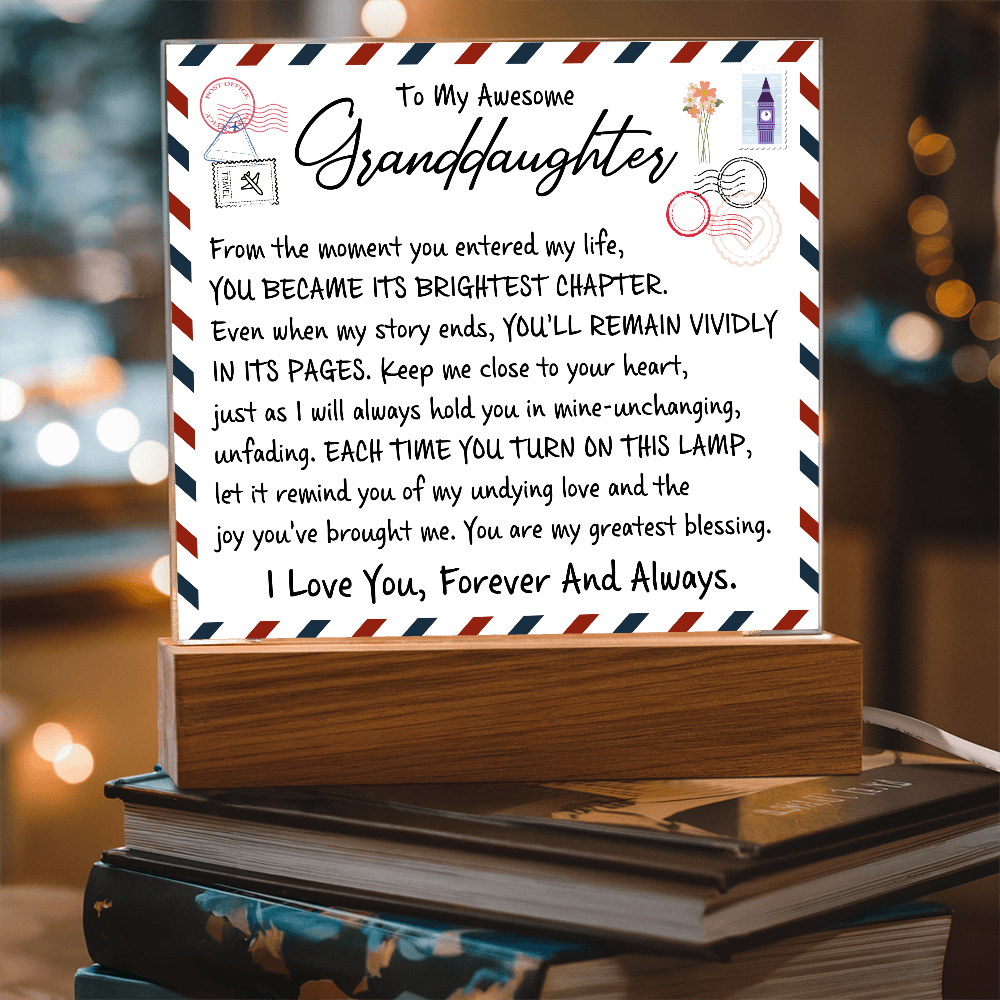 To My Awesome
Granddaughter
POST OFFICE
TRAVEL
From the moment you entered my life,
YOU BECAME ITS BRIGHTEST CHAPTER.
Even when my story ends, YOU'LL REMAIN VIVIDLY
IN ITS PAGES. Keep me close to your heart,
just as I will always hold you in mine-unchanging,
unfading. EACH TIME YOU TURN ON THIS LAMP,
let it remind you of my undying love and the
joy you've brought me. You are my greatest blessing.
I Love You, Forever And Always.